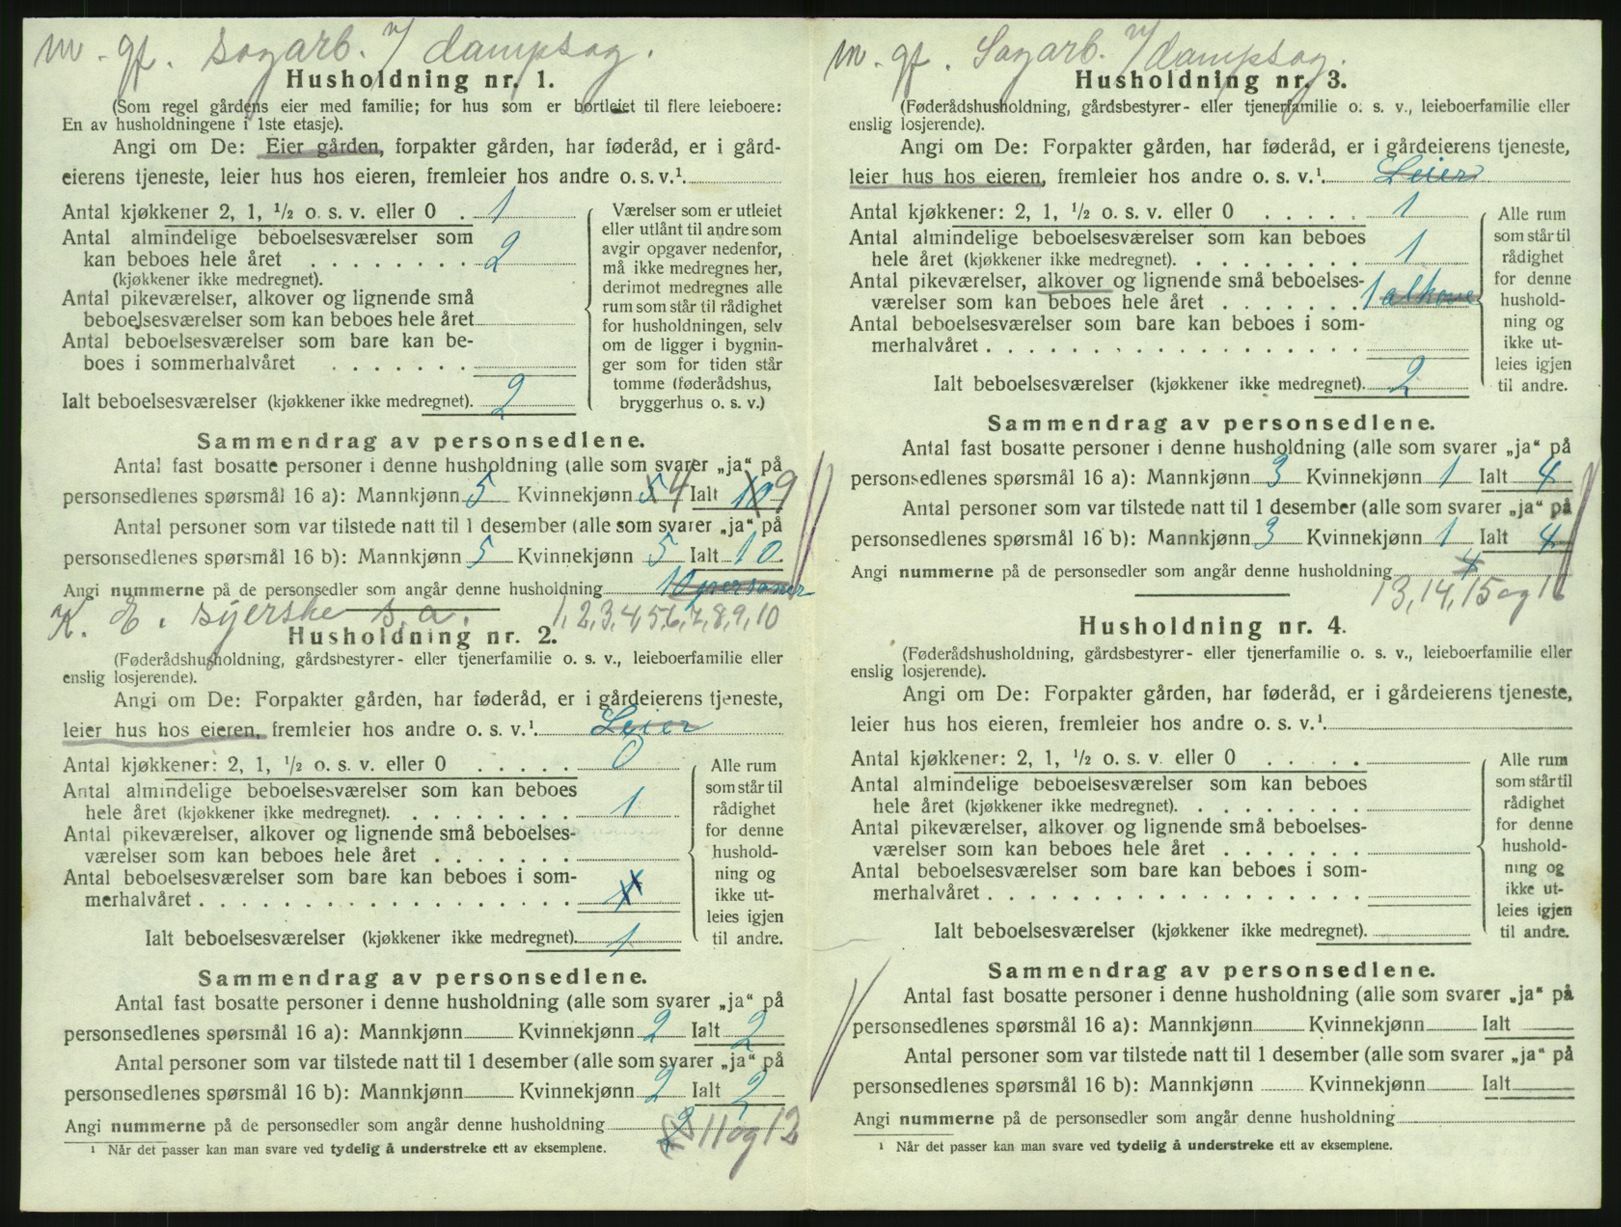 m. gf. sagarb. v/ dampsag.
Husholdning nr. 1.
(Som regel gårdens eier med familie; for hus som er bortleiet til flere leieboere:
En av husholdningene i 1ste etasje).
Angi om De: Eier gården, forpakter gården, har føderåd, er i gård-
eierens tjeneste, leier hus hos eieren, fremleier hos andre o. s. v.¹
Antal kjøkkener 2, 1, ½ o. s. v. eller 0 . 1
Antal almindelige beboelsesværelser som
kan beboes hele året . . . . . . . . 2
(kjøkkener ikke medregnet).
Antal pikeværelser, alkover og lignende små
beboelsesværelser som kan beboes hele året
Antal beboelsesværelser som bare kan be-
boes i sommerhalvåret . . . . . . .
Ialt beboelsesværelser (kjøkkener ikke medregnet). 2
Værelser som er utleiet
eller utlånt til andre som
avgir opgaver nedenfor,
må ikke medregnes her,
derimot medregnes alle
rum som står til rådighet
for husholdningen, selv
om de ligger i bygnin-
ger som for tiden står
tomme (føderådshus,
bryggerhus o. s. v.)
Sammendrag av personsedlene.
Antal fast bosatte personer i denne husholdning (alle som svarer „ja“ på
personsedlenes spørsmål 16 a): Mannkjønn 5 Kvinnekjønn 5 4 Ialt 10 9
Antal personer som var tilstede natt til 1 desember (alle som svarer „ja“ på
personsedlenes spørsmål 16 b): Mannkjønn 5 Kvinnekjønn 5 Ialt 10
Angi nummerne på de personsedler som angår denne husholdning 10 personer
K. E. syerske s.a. 1,2,3,4,5,6,7,8,9,10
Husholdning nr. 2.
(Føderådshusholdning, gårdsbestyrer- eller tjenerfamilie o. s. v., leieboerfamilie eller
enslig losjerende).
Angi om De: Forpakter gården, har føderåd, er i gårdeierens tjeneste,
leier hus hos eieren, fremleier hos andre o. s. v.¹ Leier
Antal kjøkkener: 2, 1, ½ o. s. v. eller 0 . . . . . 0
Antal almindelige beboelsesværelser som kan beboes
hele året (kjøkkener ikke medregnet). . . . . . . . . 1
Antal pikeværelser, alkover og lignende små beboelses-
værelser som kan beboes hele året . . . . . . .
Antal beboelsesværelser som bare kan beboes i som-
merhalvåret . . . . . . . . . . . . . . . . . .
Ialt beboelsesværelser (kjøkkener ikke medregnet). 1
Alle rum
som står til
rådighet
for denne
hushold-
ning og
ikke ut-
leies igjen
til andre.
Sammendrag av personsedlene.
Antal fast bosatte personer i denne husholdning (alle som svarer „ja“ på
personsedlenes spørsmål 16 a): Mannkjønn Kvinnekjønn 2 Ialt 2
Antal personer som var tilstede natt til 1 desember (alle som svarer „ja“ på
personsedlenes spørsmål 16 b): Mannkjønn Kvinnekjønn 2 Ialt 2
Angi nummerne på de personsedler som angår denne husholdning 2 11 og 12
¹ Når det passer kan man svare ved tydelig å understreke ett av eksemplene.
m. gf. Sagarb. v/dampsag.
Husholdning nr. 3.
(Føderådshusholdning, gårdsbestyrer- eller tjenerfamilie o. s. v., leieboerfamilie eller
enslig losjerende).
Angi om De: Forpakter gården, har føderåd, er i gårdeierens tjeneste,
leier hus hos eieren, fremleier hos andre o. s. v.¹ Leier
Antal kjøkkener: 2, 1, ½ o. s. v. eller 0 . . . . . 1
Antal almindelige beboelsesværelser som kan beboes
hele året (kjøkkener ikke medregnet). . . . . . . . . 1
Antal pikeværelser, alkover og lignende små beboelses-
værelser som kan beboes hele året . . . . . . . 1 alkove
Antal beboelsesværelser som bare kan beboes i som-
merhalvåret . . . . . . . . . . . . . . . . . .
Ialt beboelsesværelser (kjøkkener ikke medregnet). 2
Alle rum
som står til
rådighet
for denne
hushold-
ning og
ikke ut-
leies igjen
til andre.
Sammendrag av personsedlene.
Antal fast bosatte personer i denne husholdning (alle som svarer „ja“ på
personsedlenes spørsmål 16 a): Mannkjønn 3 Kvinnekjønn 1 Ialt 4
Antal personer som var tilstede natt til 1 desember (alle som svarer „ja“ på
personsedlenes spørsmål 16 b): Mannkjønn 3 Kvinnekjønn 1 Ialt 4
Angi nummerne på de personsedler som angår denne husholdning 4
13, 14, 15 og 16
Husholdning nr. 4.
(Føderådshusholdning, gårdsbestyrer- eller tjenerfamilie o. s. v., leieboerfamilie eller
enslig losjerende).
Angi om De: Forpakter gården, har føderåd, er i gårdeierens tjeneste,
leier hus hos eieren, fremleier hos andre o. s. v.¹
Antal kjøkkener: 2, 1, ½ o. s. v. eller 0 . . . . .
Antal almindelige beboelsesværelser som kan beboes
hele året (kjøkkener ikke medregnet). . . . . . . . .
Antal pikeværelser, alkover og lignende små beboelses-
værelser som kan beboes hele året . . . . . . .
Antal beboelsesværelser som bare kan beboes i som-
merhalvåret . . . . . . . . . . . . . . . . . .
Ialt beboelsesværelser (kjøkkener ikke medregnet).
Alle rum
som står til
rådighet
for denne
hushold-
ning og
ikke ut-
leies igjen
til andre.
Sammendrag av personsedlene.
Antal fast bosatte personer i denne husholdning (alle som svarer „ja“ på
personsedlenes spørsmål 16 a): Mannkjønn Kvinnekjønn Ialt
Antal personer som var tilstede natt til 1 desember (alle som svarer „ja“ på
personsedlenes spørsmål 16 b): Mannkjønn Kvinnekjønn Ialt
Angi nummerne på de personsedler som angår denne husholdning
¹ Når det passer kan man svare ved tydelig å understreke ett av eksemplene.